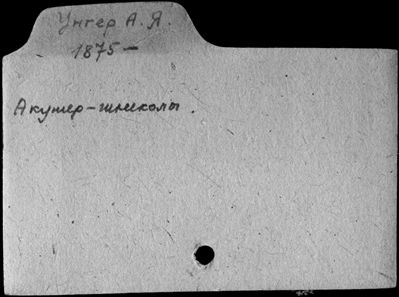 Унгер А. Я.
1875 –
Акушер-гинеколы.